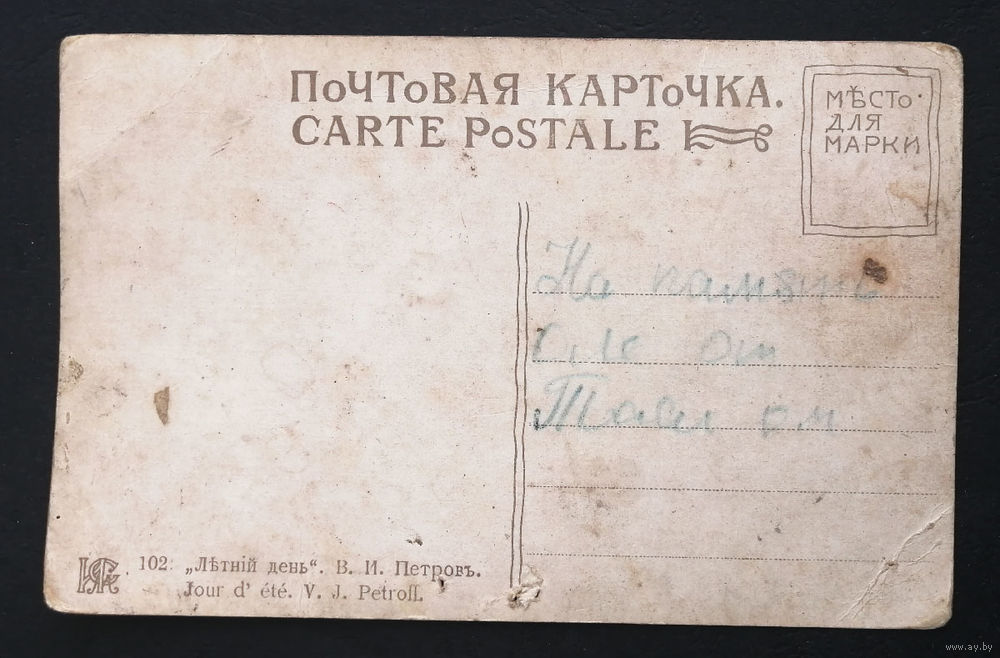 ПОЧТОВАЯ КАРТОЧКА.
CARTE POSTALE
МѢСТО
ДЛЯ
МАРКИ
На память
от
102. „Лѣтній день“. В. И. Петровъ.
Jour d' été. V. J. Petroff.
www.ay.by